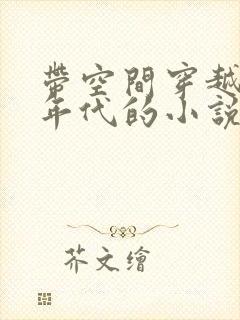 帶空間穿越
年代的小說
芥文繪